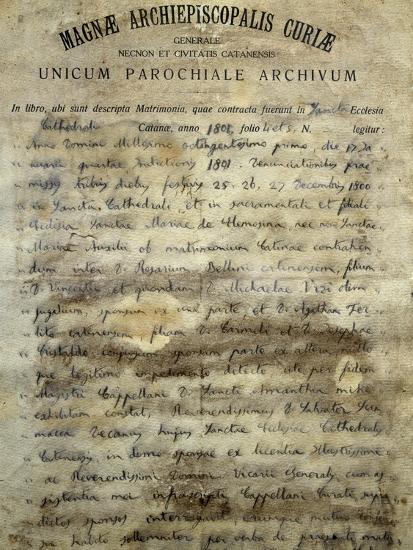 MAGNÆ ARCHIEPISCOPALIS CURIÆ
GENERALE
NECNON ET CIVITATIS CATANENSIS
UNICUM PAROCHIALE ARCHIVUM
In libro, ubi sunt descripta Matrimonia, quae contracta fuerunt in Sancta Ecclesia
Cathedrali Catanae, anno 1801, folio 4 et 5, N. legitur:
Anno Domini Millesimo octingentesimo primo, die 17 Ja
nuarii quartae Indictionis 1801. Denunciationibus prae
missis tribus diebus festivis 25. 26. 27 Decembris 1800
in Sancta Cathedrali et in sacramentali et filiali
Ecclesia Sanctae Mariae de Elemosina, nec non Sanctae
Mariae Auxilii ob matrimonium Catanae contrahen
dum inter D. Rosarium Bellini catanensem, filium
D. Vincentii et quondam D. Michaelae Vizi olim
jugalium, sponsum ex una parte, et D. Agatham Fer
lito catanensem, filiam D. Carmeli et D. Josephae
Cristaldo conjugum sponsam parte ex altera. Illo
que legitimo impedimento detecto, ut per fidem
Magistri Cappellani D. mihi
exhibitam constat, Reverendissimus D. Salvator
Decanus hujus Sanctae Ecclesiae Cathedralis
Catanensis, in domo sponsae ex licentia Illustrissimi
ac Reverendissimi Domini Vicarii Generalis, cum as
sistentia mei infrascripti Cappellani Curati, supra
dictos sponsos interrogavit, eorumque mutuo consen
su habito sollemniter per verba de praesenti matri